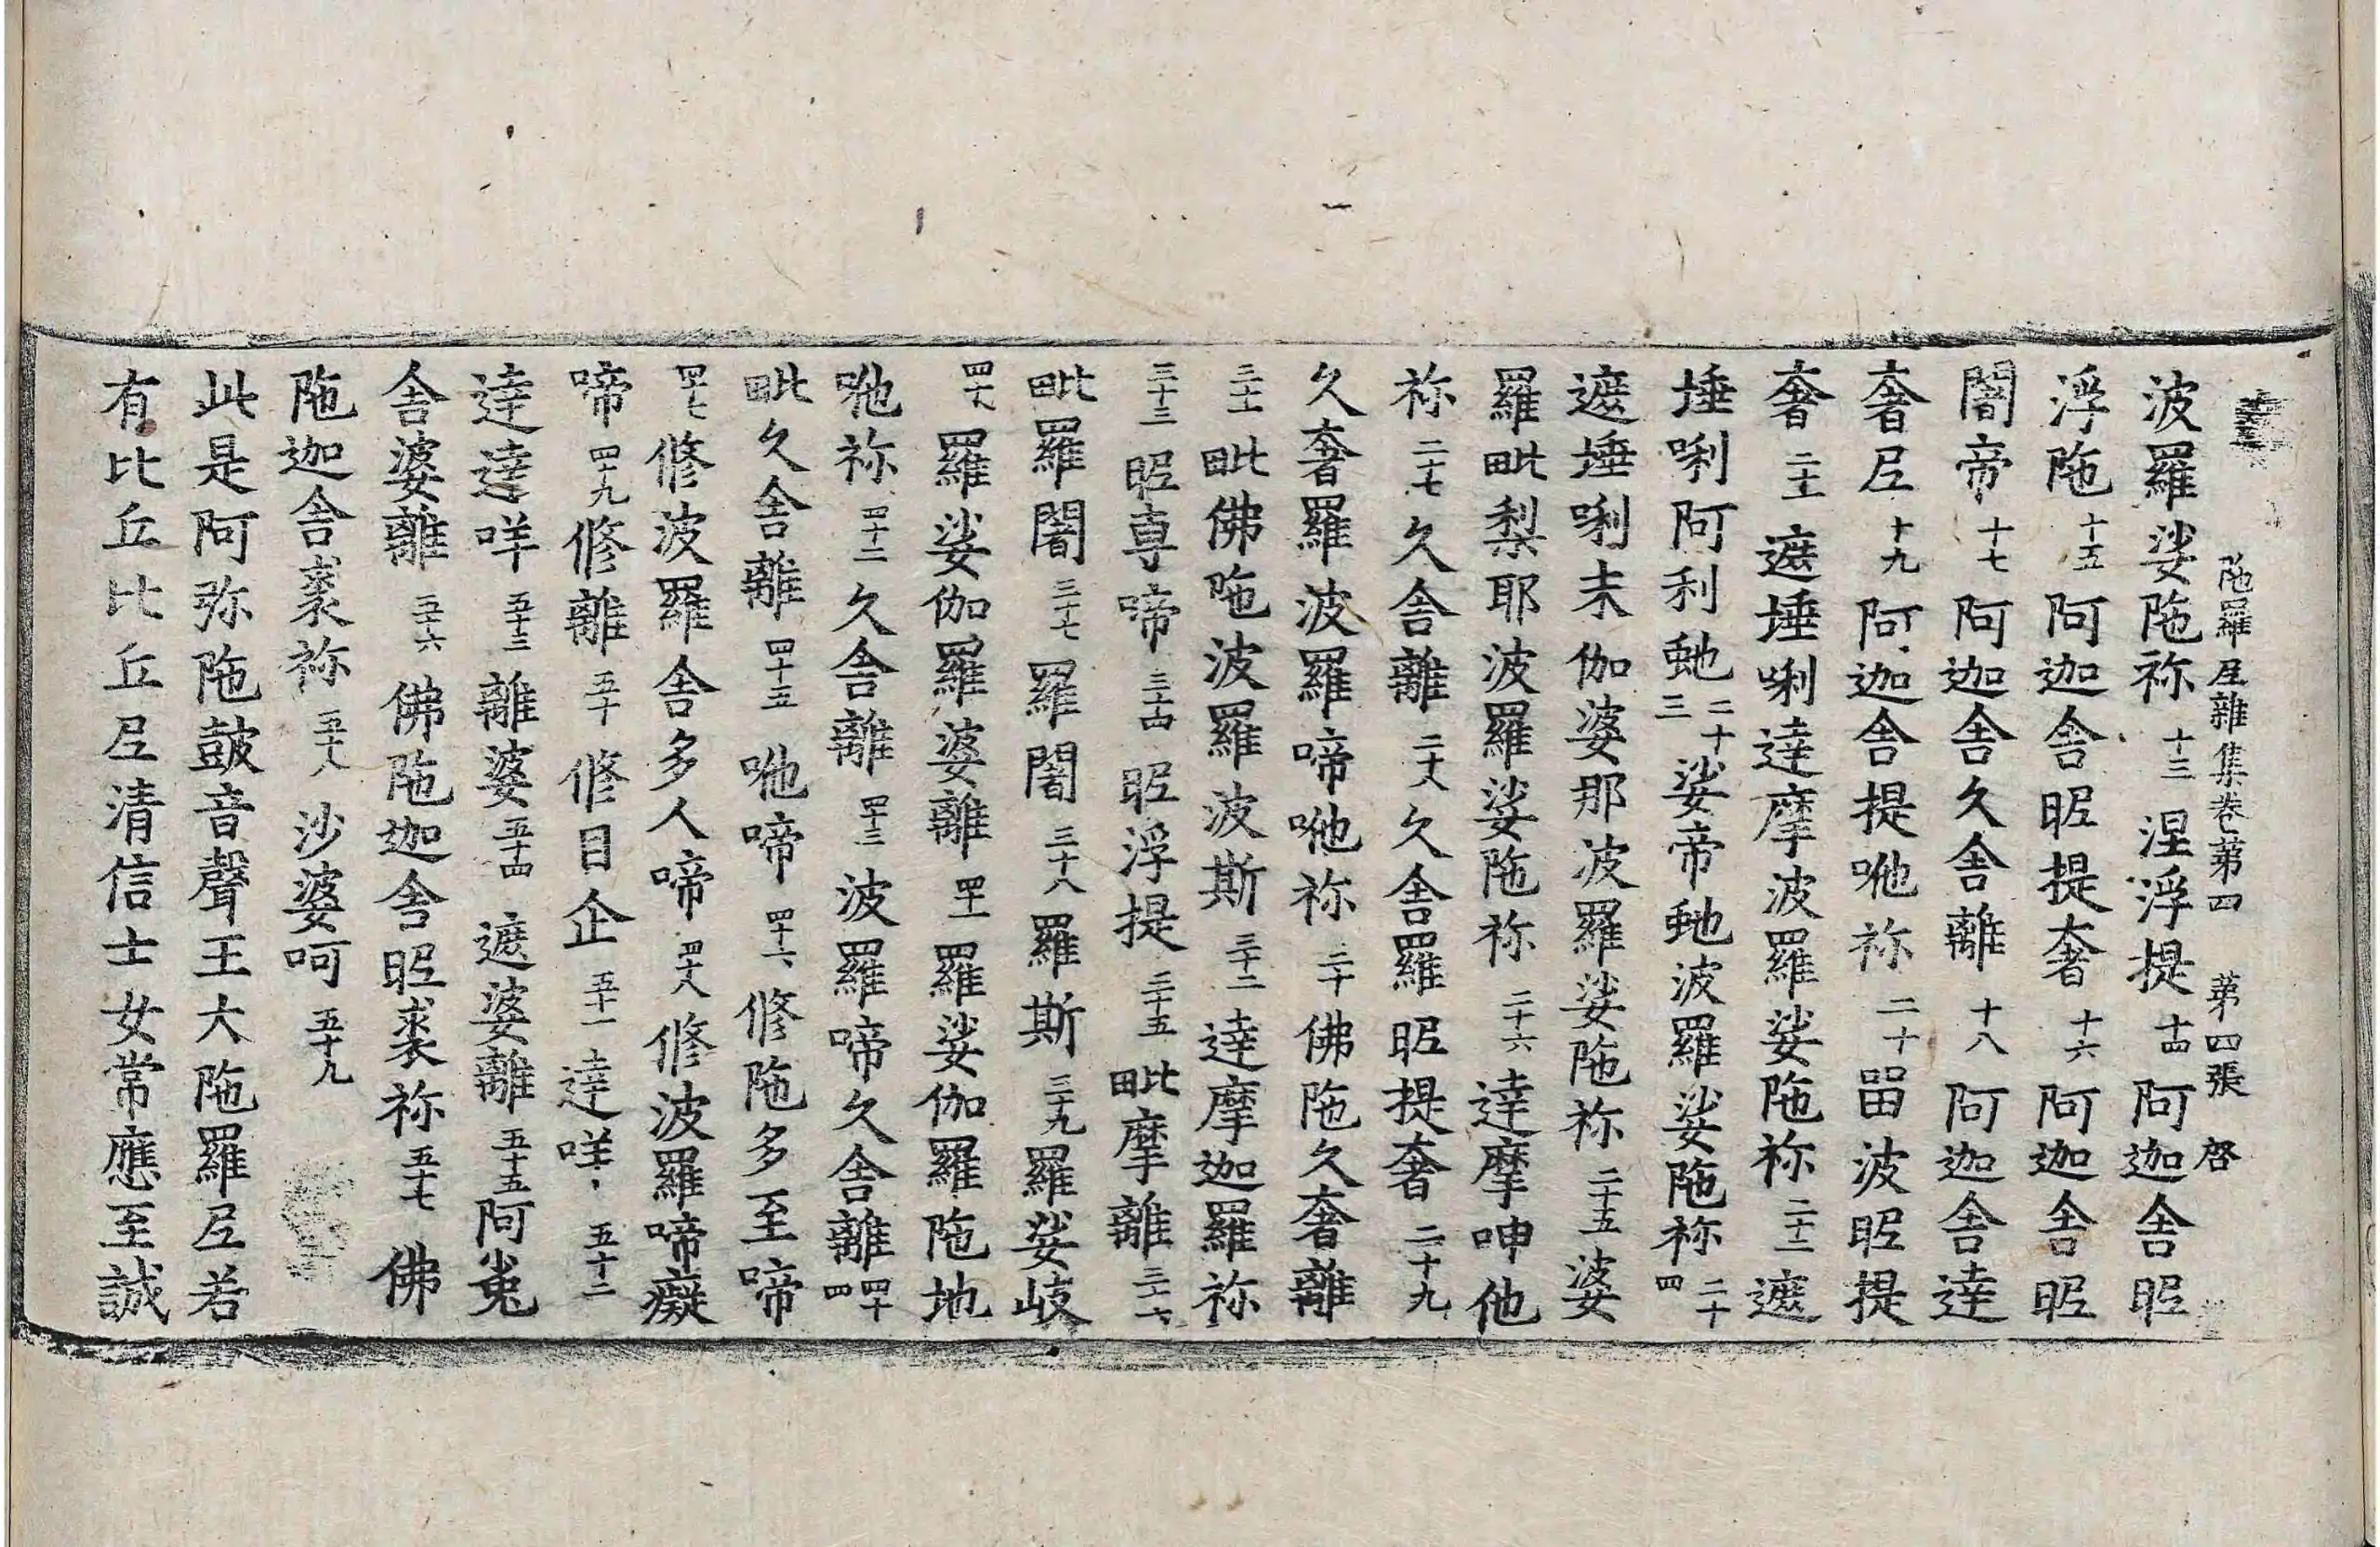 陁羅尼雜集卷第四 第四張 啓
波羅娑陁祢十三涅浮提十四阿迦舍昵
浮陁十五阿迦舍昵提奢十六阿迦舍昵
闍帝十七阿迦舍久舍離十八阿迦舍達
奢尼十九阿迦舍提呬祢二十留波昵提
奢二十一遮埵唎達摩波羅娑陁祢二十二遮
埵唎阿利虵二十三娑帝虵波羅娑陁祢二十四
遮埵唎末伽婆那波羅娑陁祢二十五婆
羅毗梨耶波羅娑陁祢二十六達摩呻他
祢二十七久舍離二十八久舍羅昵提奢二十九
久奢羅波羅啼呬祢三十佛陁久奢離
三十一毗佛陁波羅波斯三十二達摩迦羅祢
三十三昵專啼三十四昵浮提三十五毗摩離三十六
毗羅闍三十七羅闍三十八羅斯三十九羅娑岐
四十羅娑伽羅婆離四十一羅娑伽羅陁地
呬祢四十二久舍離四十三波羅啼久舍離四十四
毗久舍離四十五呬啼四十六修陁多至啼
四十七修波羅舍多人啼四十八修波羅啼癡
啼四十九修離五十修目企五十一達咩五十二
達達咩五十三離婆五十四遮婆離五十五阿㝹
舍婆離五十六佛陁迦舍昵裘祢五十七佛
陁迦舍裘祢五十八沙婆呵五十九
此是阿弥陁鼓音聲王大陁羅尼若
有比丘比丘尼清信士女常應至誠